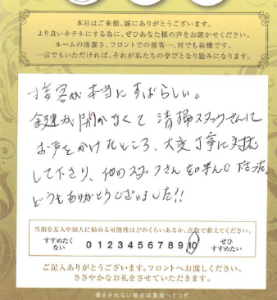 本日はご来館、誠にありがとうございます。
より良いホテルにする為に、ぜひあなた様の声をお聞かせください。
ルームの清潔さ、フロントでの接客…何でも結構です。
一言でもいただければ、それが私たちの学びとなり励みになります。
接客が本当にすばらしい。
鍵が開かなくて清掃スタッフさんに
お声をかけたところ、大変丁寧に対応
して下さり、他のスタッフさんを呼んで下さった
どうもありがとうございました!!
当館を友人や個人に勧める可能性はどのくらいあるか、点数で教えてください。
すすめたくない 0 1 2 3 4 5 6 7 8 9 10 ぜひすすめたい
ご記入ありがとうございます。フロントへお渡しください。
ささやかなお礼をさせていただきます。